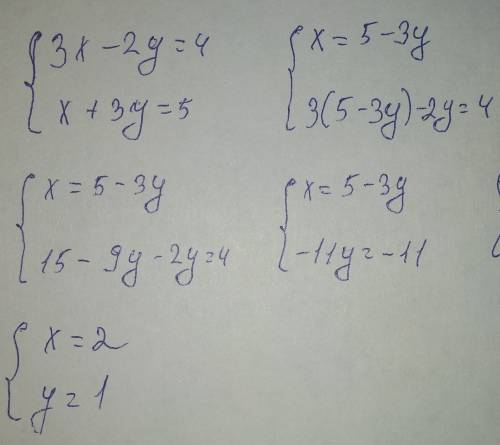 3x - 2y = 4
x + 3y = 5
x = 5 - 3y
3(5 - 3y) - 2y = 4
x = 5 - 3y
15 - 9y - 2y = 4
x = 5 - 3y
-11y = -11
x = 2
y = 1